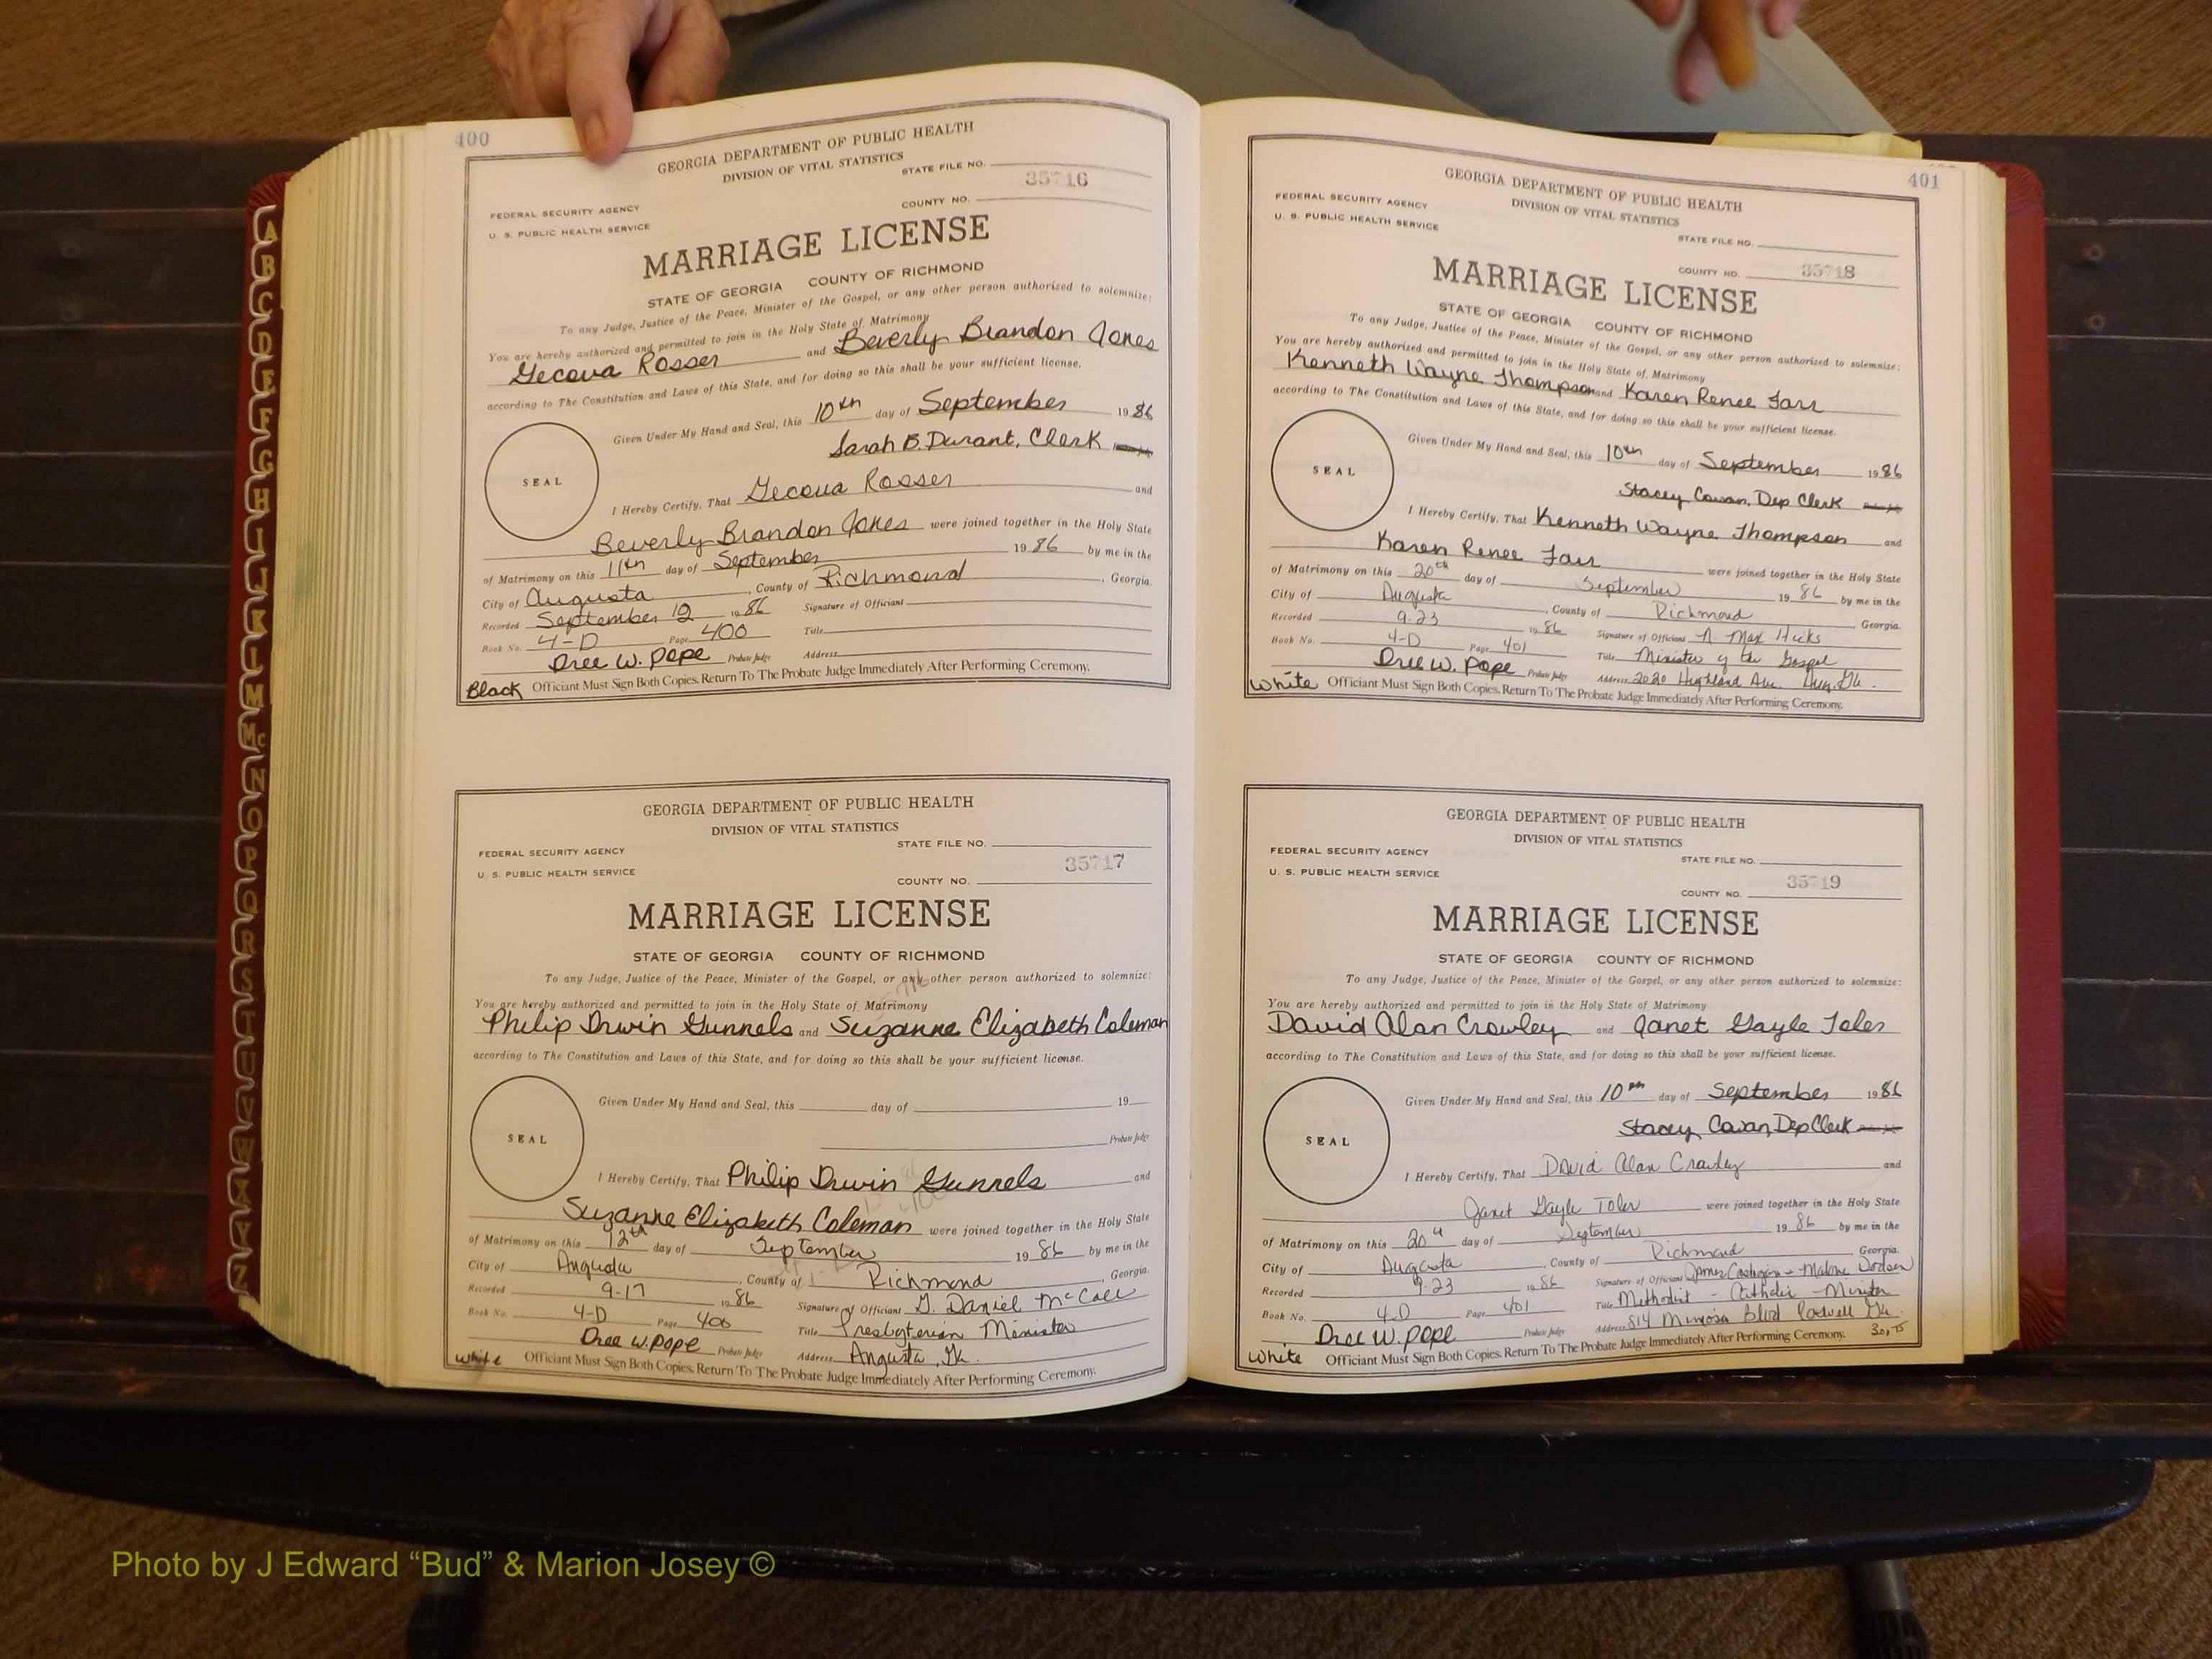 400
GEORGIA DEPARTMENT OF PUBLIC HEALTH
DIVISION OF VITAL STATISTICS
STATE FILE NO.
35716
FEDERAL SECURITY AGENCY
COUNTY NO.
U. S. PUBLIC HEALTH SERVICE
MARRIAGE LICENSE
STATE OF GEORGIA COUNTY OF RICHMOND
To any Judge, Justice of the Peace, Minister of the Gospel, or any other person authorized to solemnize:
You are hereby authorized and permitted to join in the Holy State of Matrimony
Gecova Rosser and Beverly Brandon Jones
according to The Constitution and Laws of this State, and for doing so this shall be your sufficient license.
Given Under My Hand and Seal, this 10th day of September 1986
Sarah B. Durant, Clerk
SEAL
I Hereby Certify, That Gecova Rosser and
Beverly Brandon Jones were joined together in the Holy State
of Matrimony on this 11th day of September 1986 by me in the
City of Augusta, County of Richmond, Georgia.
Recorded September 12 1986 Signature of Officiant
Book No. 4-D Page 400 Title
Dree W. Pope Probate Judge Address
Black Officiant Must Sign Both Copies. Return To The Probate Judge Immediately After Performing Ceremony.
GEORGIA DEPARTMENT OF PUBLIC HEALTH
DIVISION OF VITAL STATISTICS
STATE FILE NO.
FEDERAL SECURITY AGENCY
35717
U. S. PUBLIC HEALTH SERVICE
COUNTY NO.
MARRIAGE LICENSE
STATE OF GEORGIA COUNTY OF RICHMOND
To any Judge, Justice of the Peace, Minister of the Gospel, or any other person authorized to solemnize:
You are hereby authorized and permitted to join in the Holy State of Matrimony
Philip Irwin Gunnels and Suzanne Elizabeth Coleman
according to The Constitution and Laws of this State, and for doing so this shall be your sufficient license.
Given Under My Hand and Seal, this day of 19
Probate Judge
SEAL
I Hereby Certify, That Philip Irwin Gunnels and
Suzanne Elizabeth Coleman were joined together in the Holy State
of Matrimony on this 12th day of September 1986 by me in the
City of Augusta, County of Richmond, Georgia.
Recorded 9-17 1986 Signature of Officiant G. Daniel McCall
Book No. 4-D Page 400 Title Presbyterian Minister
Dree W. Pope Probate Judge Address Augusta, Ga.
White Officiant Must Sign Both Copies. Return To The Probate Judge Immediately After Performing Ceremony.
401
GEORGIA DEPARTMENT OF PUBLIC HEALTH
DIVISION OF VITAL STATISTICS
FEDERAL SECURITY AGENCY
U. S. PUBLIC HEALTH SERVICE
STATE FILE NO.
COUNTY NO. 35718
MARRIAGE LICENSE
STATE OF GEORGIA COUNTY OF RICHMOND
To any Judge, Justice of the Peace, Minister of the Gospel, or any other person authorized to solemnize:
You are hereby authorized and permitted to join in the Holy State of Matrimony
Kenneth Wayne Thompson and Karen Renee Farr
according to The Constitution and Laws of this State, and for doing so this shall be your sufficient license.
Given Under My Hand and Seal, this 10th day of September 1986
Stacey Cowan, Dep Clerk
SEAL
I Hereby Certify, That Kenneth Wayne Thompson and
Karen Renee Farr were joined together in the Holy State
of Matrimony on this 20th day of September 1986 by me in the
City of Augusta, County of Richmond Georgia.
Recorded 9-23 1986 Signature of Officiant N Max Hicks
Book No. 4-D Page 401 Title Minister of the Gospel
Dree W. Pope Probate Judge Address 2020 Highland Ave. Aug. Ga.
White Officiant Must Sign Both Copies. Return To The Probate Judge Immediately After Performing Ceremony.
GEORGIA DEPARTMENT OF PUBLIC HEALTH
DIVISION OF VITAL STATISTICS
FEDERAL SECURITY AGENCY
STATE FILE NO.
U. S. PUBLIC HEALTH SERVICE
35719
COUNTY NO.
MARRIAGE LICENSE
STATE OF GEORGIA COUNTY OF RICHMOND
To any Judge, Justice of the Peace, Minister of the Gospel, or any other person authorized to solemnize:
You are hereby authorized and permitted to join in the Holy State of Matrimony
David Alan Crowley and Janet Gayle Toler
according to The Constitution and Laws of this State, and for doing so this shall be your sufficient license.
Given Under My Hand and Seal, this 10th day of September 1986
Stacey Cowan, Dep Clerk
SEAL
I Hereby Certify, That David Alan Crowley and
Janet Gayle Toler were joined together in the Holy State
of Matrimony on this 20th day of September 1986 by me in the
City of Augusta, County of Richmond Georgia.
Recorded 9-23 1986 Signature of Officiant James - Malone Dodson
Book No. 4-D Page 401 Title Methodist - Catholic - Minister
Dree W. Pope Probate Judge Address 814 Mimosa Blvd Roswell Ga.
White Officiant Must Sign Both Copies. Return To The Probate Judge Immediately After Performing Ceremony.
A
B
C
D
E
F
G
H
I
J
K
L
M
Mc
N
O
P
Q
R
S
T
U
V
W
X
Y
Z
Photo by J Edward “Bud” & Marion Josey ©